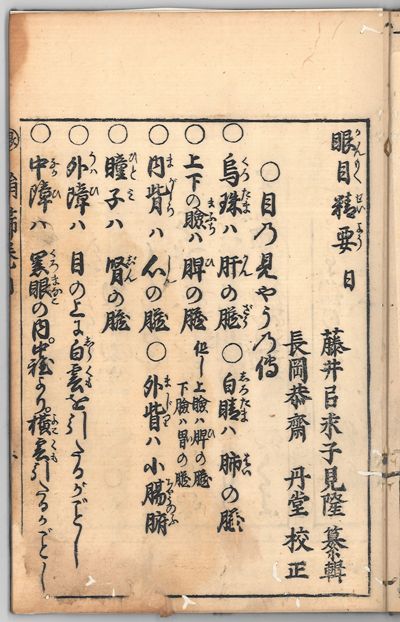 眼目精要 目
藤井呂求子見隆 纂輯
長岡恭齋 丹堂 校正
○目乃見やう乃傳
○烏珠ハ肝の臓 ○白睛ハ肺の臓
上下の瞼ハ脾の臓 但し上瞼ハ脾の臓 下瞼ハ胃の臓
○内眥ハ心の臓 ○外眥ハ小腸腑
○瞳子ハ腎の臓
○外障ハ目の上に白雲を引たるがごとし
○中障ハ裏眼の内より横雲引たるがごとし